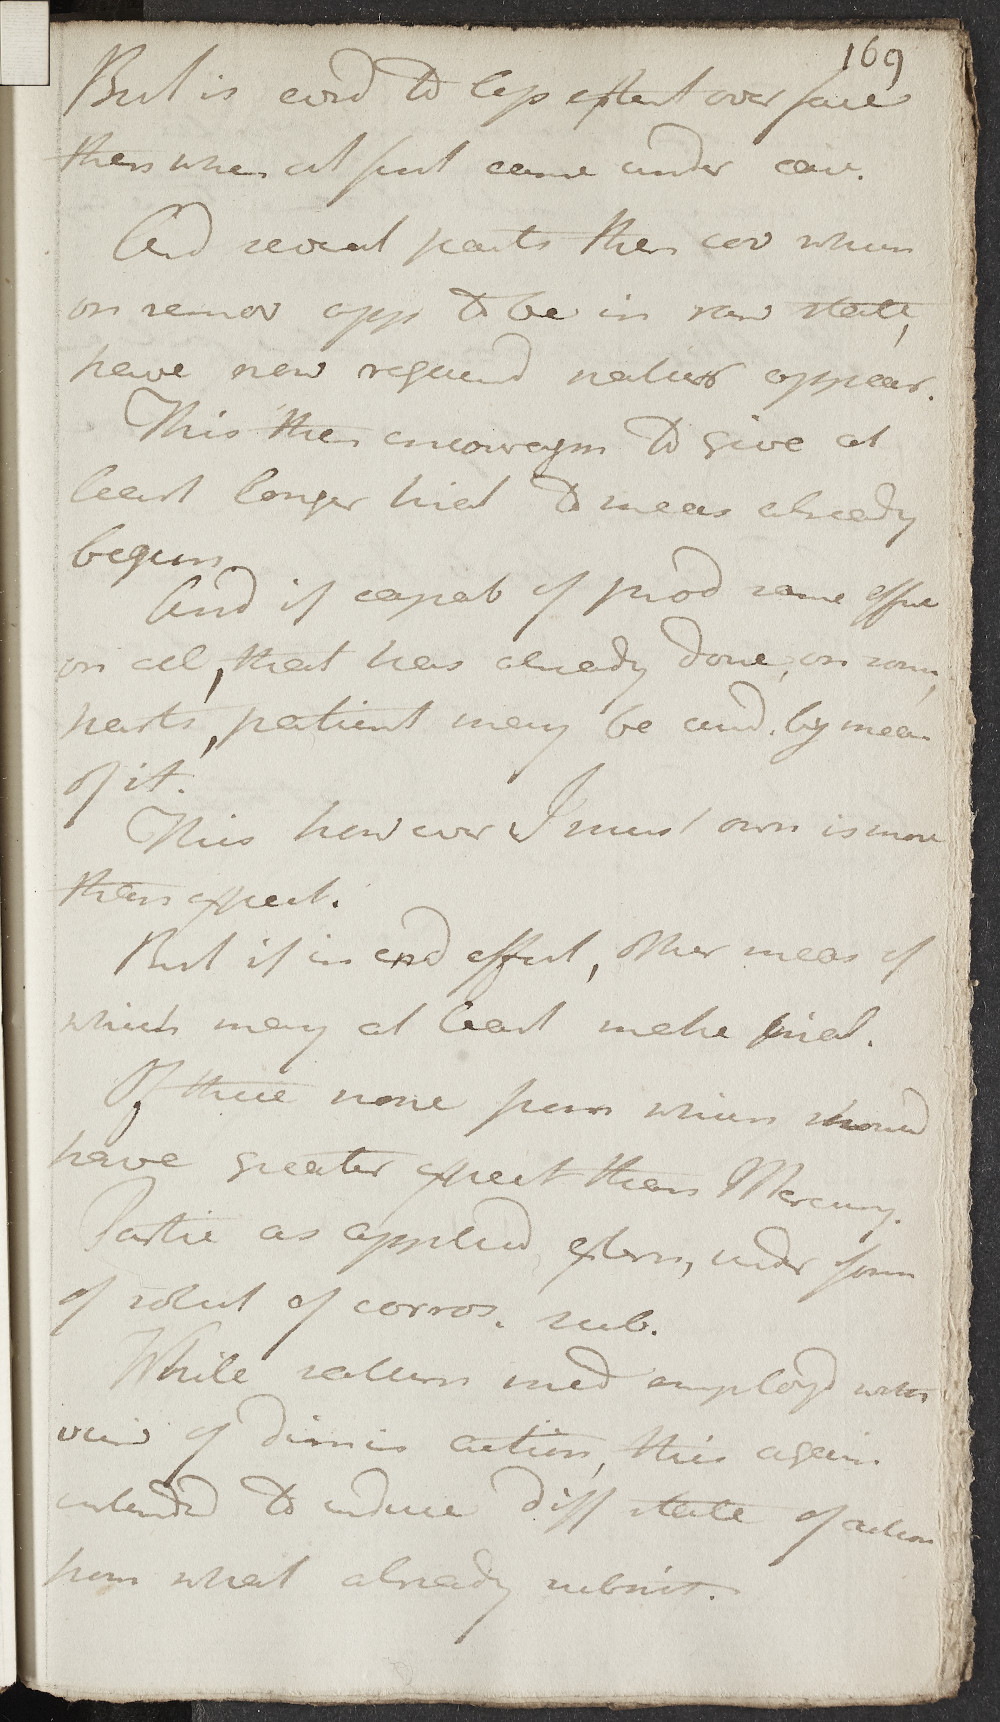 169
But is cov'd to less extent over face
than when at first came under care.
And several parts then cov which
on remov app to be in raw state,
have now regained natur appear.
This then encouragm to give at
least longer trial to meas already
begun.
And if capab of prod same effec
on all, that has already done, on some,
parts, patient may be cured. by mean
of it.
This however I must own is more
than expect.
But if in end effect, other meas of
which may at least make trial.
Of these none from which should
have greater expect than Mercury.
Partic as applied extern, under form
of solut of corros. sub.
While saturn med employd with
view of dimin action, this again
intended to induce diff state of action
from what already subsist.